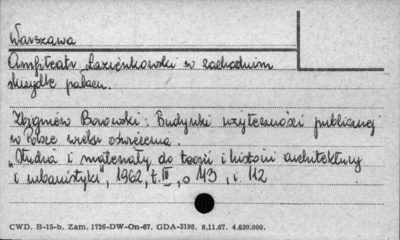 Warszawa
Amfiteatr Łazienkowski w zachodnim
skrzydle pałacu.
Zbigniew Borowski: Budynki użyteczności publicznej
w Polsce wieku oświecenia.
"Studia i materiały do teorii i historii architektury
i urbanistyki", 1962, t. III, s 113, i. 112
CWD. B-15-b. Zam. 1726-DW-On-67. GDA-3198. 8.11.67. 4.630.000.